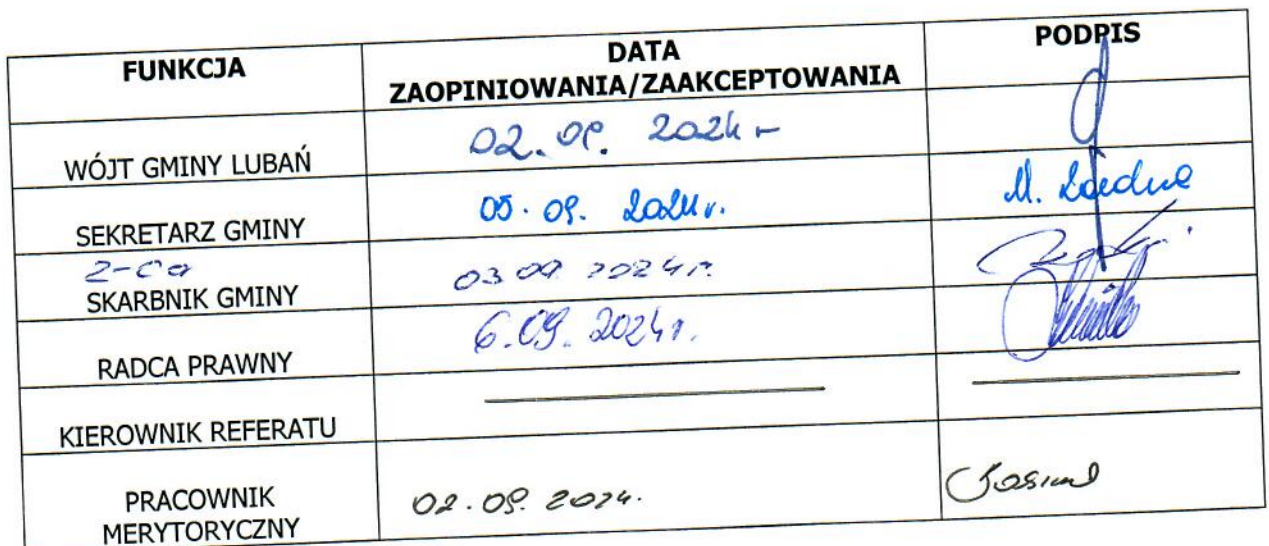 FUNKCJA
DATA
ZAOPINIOWANIA/ZAAKCEPTOWANIA
PODPIS
WÓJT GMINY LUBAŃ
02.09. 2024 r
SEKRETARZ GMINY
05.09. 2024r.
M.
Z-ca
SKARBNIK GMINY
03 09 2024r.
RADCA PRAWNY
6.09. 2024r.
KIEROWNIK REFERATU
PRACOWNIK
MERYTORYCZNY
02.09.2024.